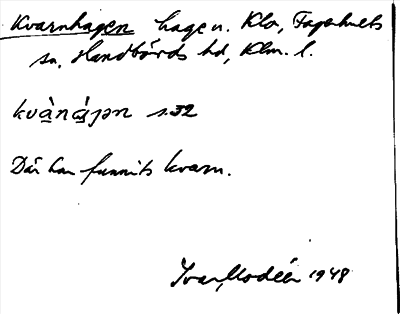 Kvarnhagen hage u. Klo, Fagerhults
sn, Handbörds hd, Klm. l.
kvànájən s. 32
Där har funnits kvarn.
Ivar Modéer 1948